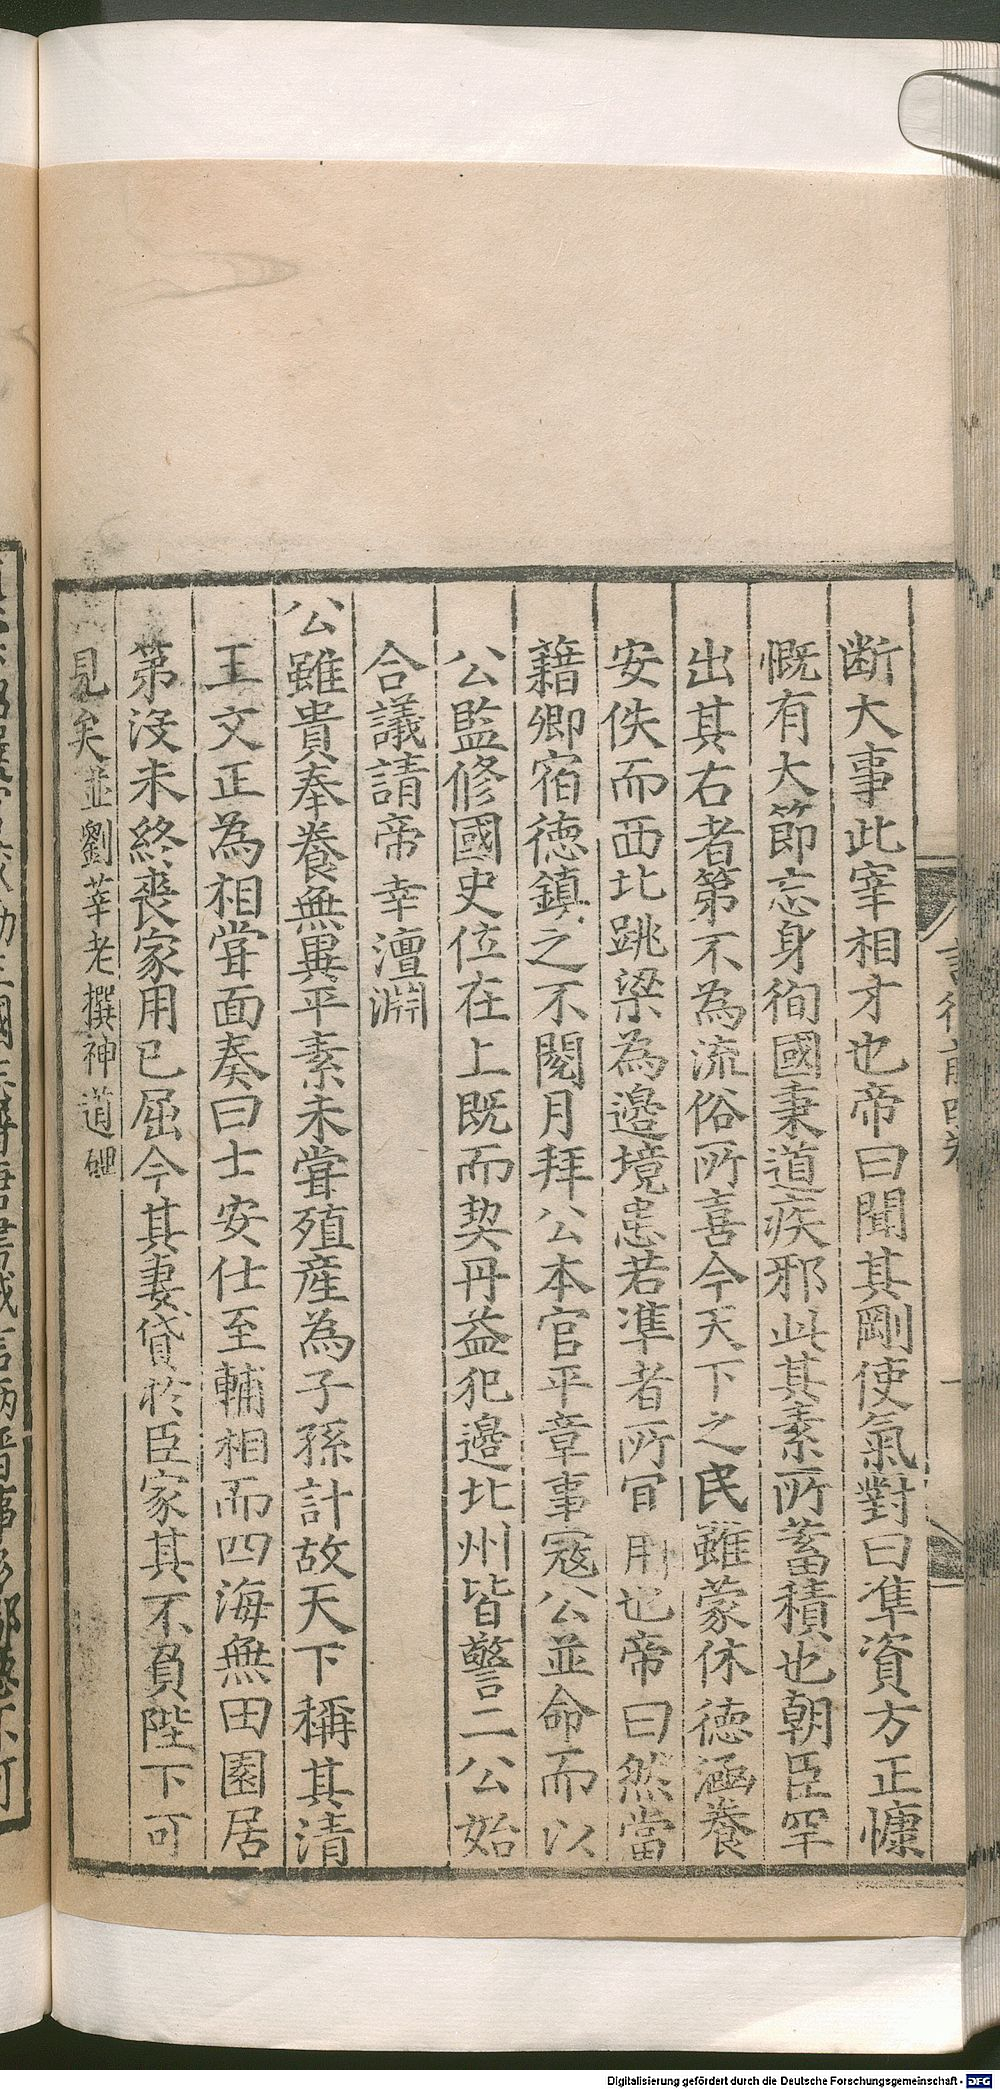 断大事此宰相才也帝曰聞其剛使氣對曰準資方正慷
慨有大節忘身徇國秉道疾邪此其素所蓄積也朝臣罕
出其右者第不為流俗所喜今天下之民雖蒙休德涵養
安佚而西北跳梁為邊境患若準者所宜用也帝曰然當
藉卿宿德鎮之不閱月拜公本官平章事寇公並命而以
公監修國史位在上既而契丹益犯邊北州皆警二公始
合議請帝幸澶淵
公雖貴奉養無異平素未甞殖產為子孫計故天下稱其清
王文正為相甞面奏曰士安仕至輔相而四海無田園居
第沒未終喪家用已屈今其妻貸於臣家其不負陛下可
見矣並劉莘老撰神道碑
言行前四卷
Digitalisierung gefördert durch die Deutsche Forschungsgemeinschaft - DFG